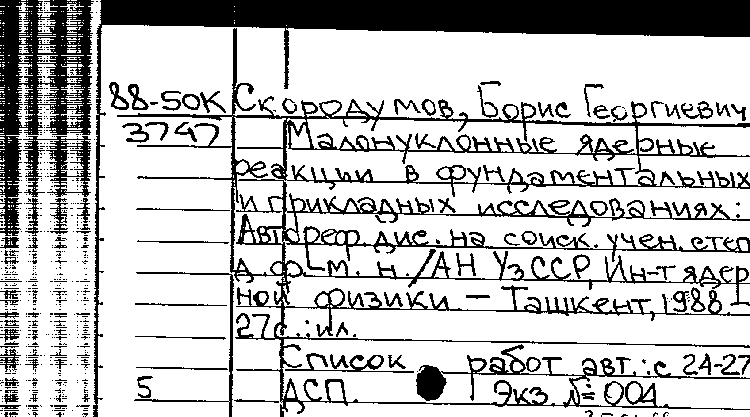 88-50К Скородумов, Борис Георгиевич
3747 Малонуклонные ядерные
реакции в фундаментальных
и прикладных исследованиях:
Автореф. дис. на соиск. учен. степ
д. ф.-м. н. /АН УзССР, Ин-т ядер
ной физики — Ташкент, 1988.—
27с.: ил.
Список работ авт.: с 24-27
5 ДСП. Экз. № 004.